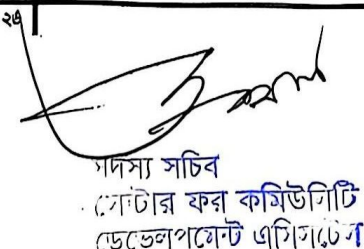 ২৬
সদস্য সচিব
সেন্টার ফর কমিউনিটি
ডেভেলপমেন্ট এসিসটেন্স